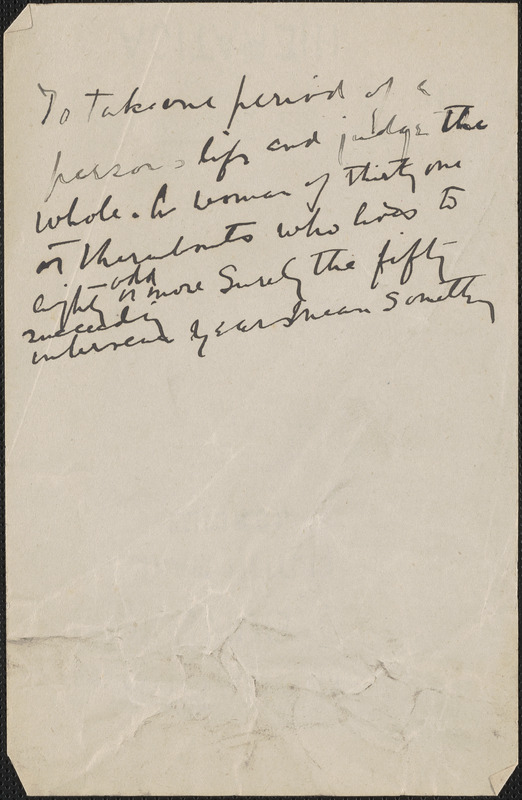 To take one period of a
persons life and judge the
whole. A woman of thirty one
or thereabouts who lives to
eighty odd or more Surely the fifty
succeeding
intervening years mean something